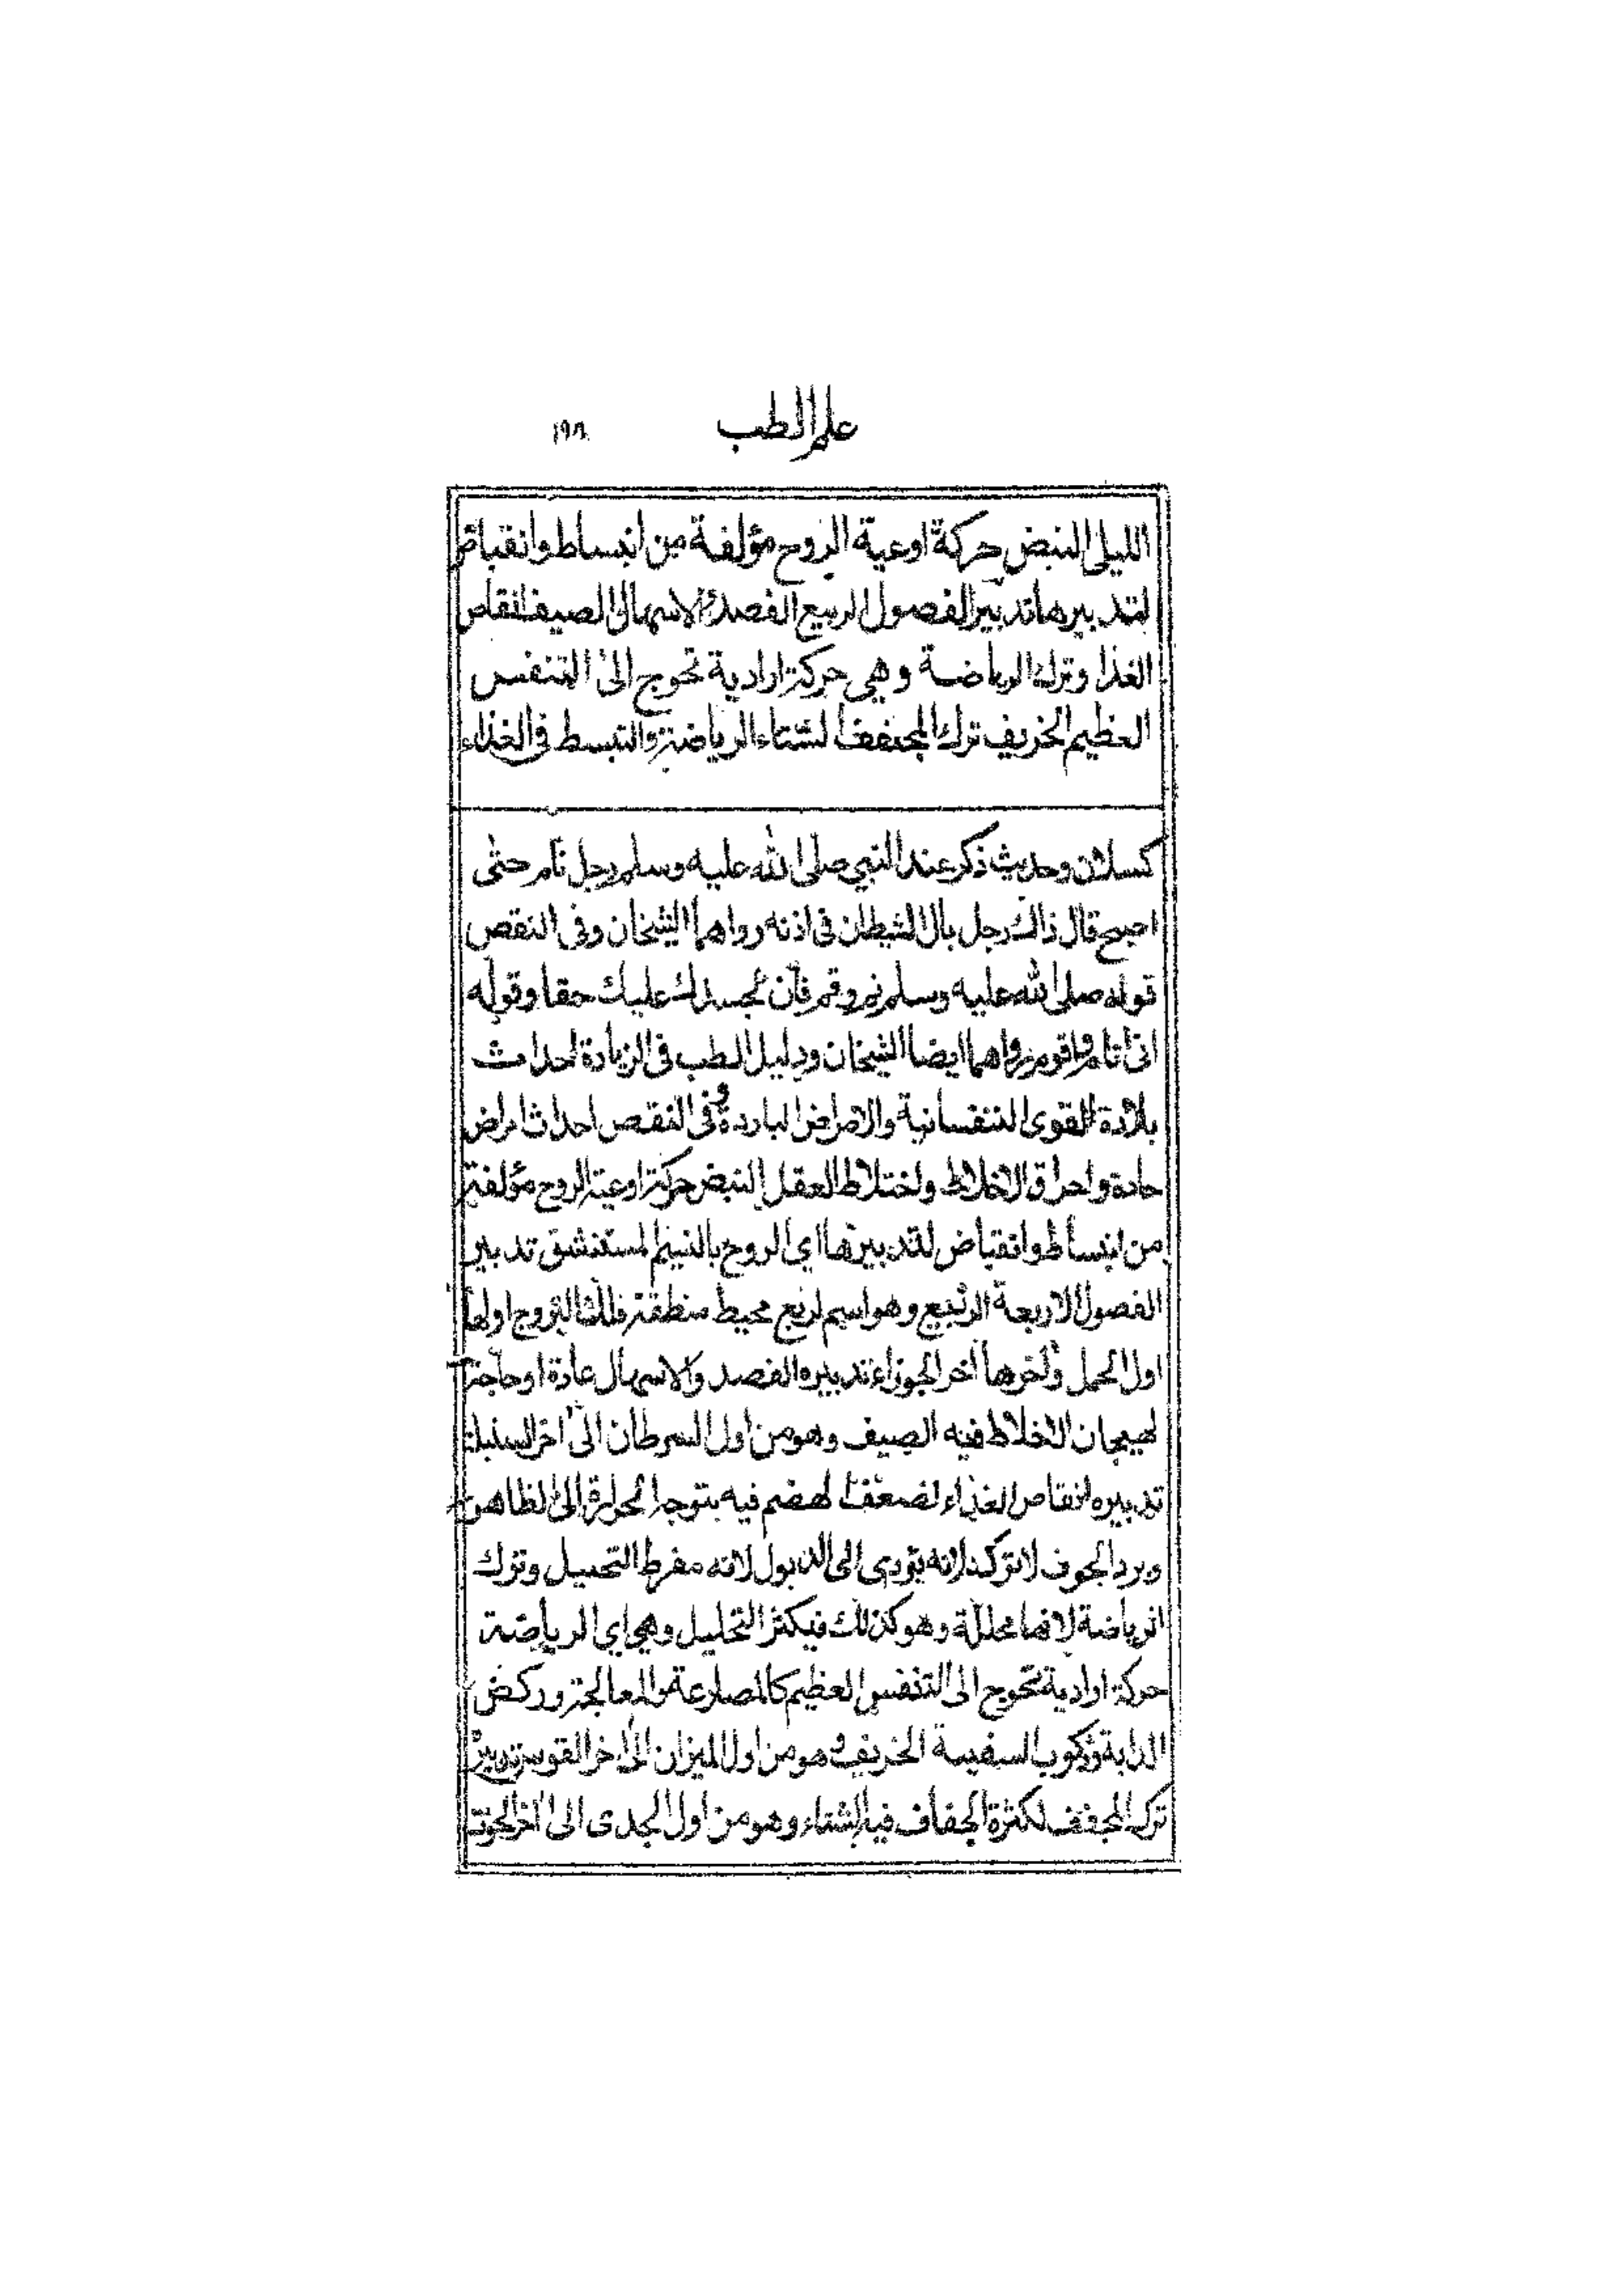 علم الطب ١٩٨
الليلى النبض حركة اوعية الروح مؤلفة من انبساط وانقباض
لتدبيرها تدبير الفصول الربيع الفصد والاسهال الصيف انقاص
الغذا وترك الرياضة وهى حركة ارادية تحوج الى التنفس
العظيم الخريف ترك المجفف الشتاء الرياضة والتبسط فى الغذاء
كسلان وحديث ذكر عند النبي صلى الله عليه وسلم رجل نام حتى
اصبح قال ذاك رجل بال الشيطان فى اذنه رواهما الشيخان وفى النقص
قوله صلى الله عليه وسلم نم وقم فان لجسدك عليك حقا وقوله
انى انام واقوم رواهما ايضا الشيخان ودليل الطب فى الزيادة احداث
بلادة القوى النفسانية والامراض الباردة وفى النقص احداث امراض
حادة واحراق الاخلاط واختلاط العقل النبض حركة اوعية الروح مؤلفة
من انبساط وانقباض لتدبيرها اي الروح بالنسيم المستنشق تدبير
الفصول الاربعة الربيع وهو اسم لربع محيط منطقة فلك البروج اولها
اول الحمل وآخرها آخر الجوزاء تدبيره الفصد والاسهال عادة او حاجة
لهيجان الاخلاط فيه الصيف وهو من اول السرطان الى آخر السنبلة
تدبيره انقاص الغذاء لضعف الهضم فيه بتوجه الحرارة الى الظاهر
وبرد الجوف لا تركه لانه يؤدى الى الذبول لانه مفرط التحليل وترك
الرياضة لانها محللة وهو كذلك فيكثر التحليل وهى اي الرياضة
حركة ارادية تحوج الى التنفس العظيم كالمصارعة والمعالجة وركض
الدابة وركوب السفينة الخريف وهو من اول الميزان الى آخر القوس تدبيره
ترك المجفف لكثرة الجفاف فيه الشتاء وهو من اول الجدى الى آخر الحوت